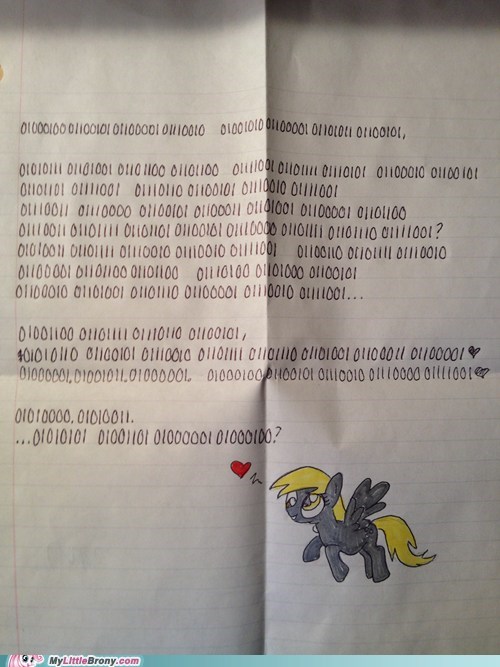 01000100 01100101 01100001 01110010 01001010 01100001 01101011 01100101,
01010111 01101001 01101100 01101100 01111001 01101111 01110101 01100010 01100101
01101101 01111001 01110110 01100101 01110010 01111001
01110011 01110000 01100101 01100011 01101001 01100001 01101100
01110011 01101111 01101101 01100101 01110000 01101111 01101110 01111001?
01010011 01101111 01110010 01110010 01111001 01100110 01101111 01110010
01100001 01101100 01101100 01110100 01101000 01100101
01100010 01101001 01101110 01100001 01110010 01111001...
01001100 01101111 01110110 01100101,
01010110 01100101 01110010 01101111 01101110 01101001 01100011 01100001♥
01000001.01001011.01000001. 01000100 01100101 01110010 01110000 01111001♥
01010000.01010011.
...01010101 01001101 01000001 01000100?
MyLittleBrony.com